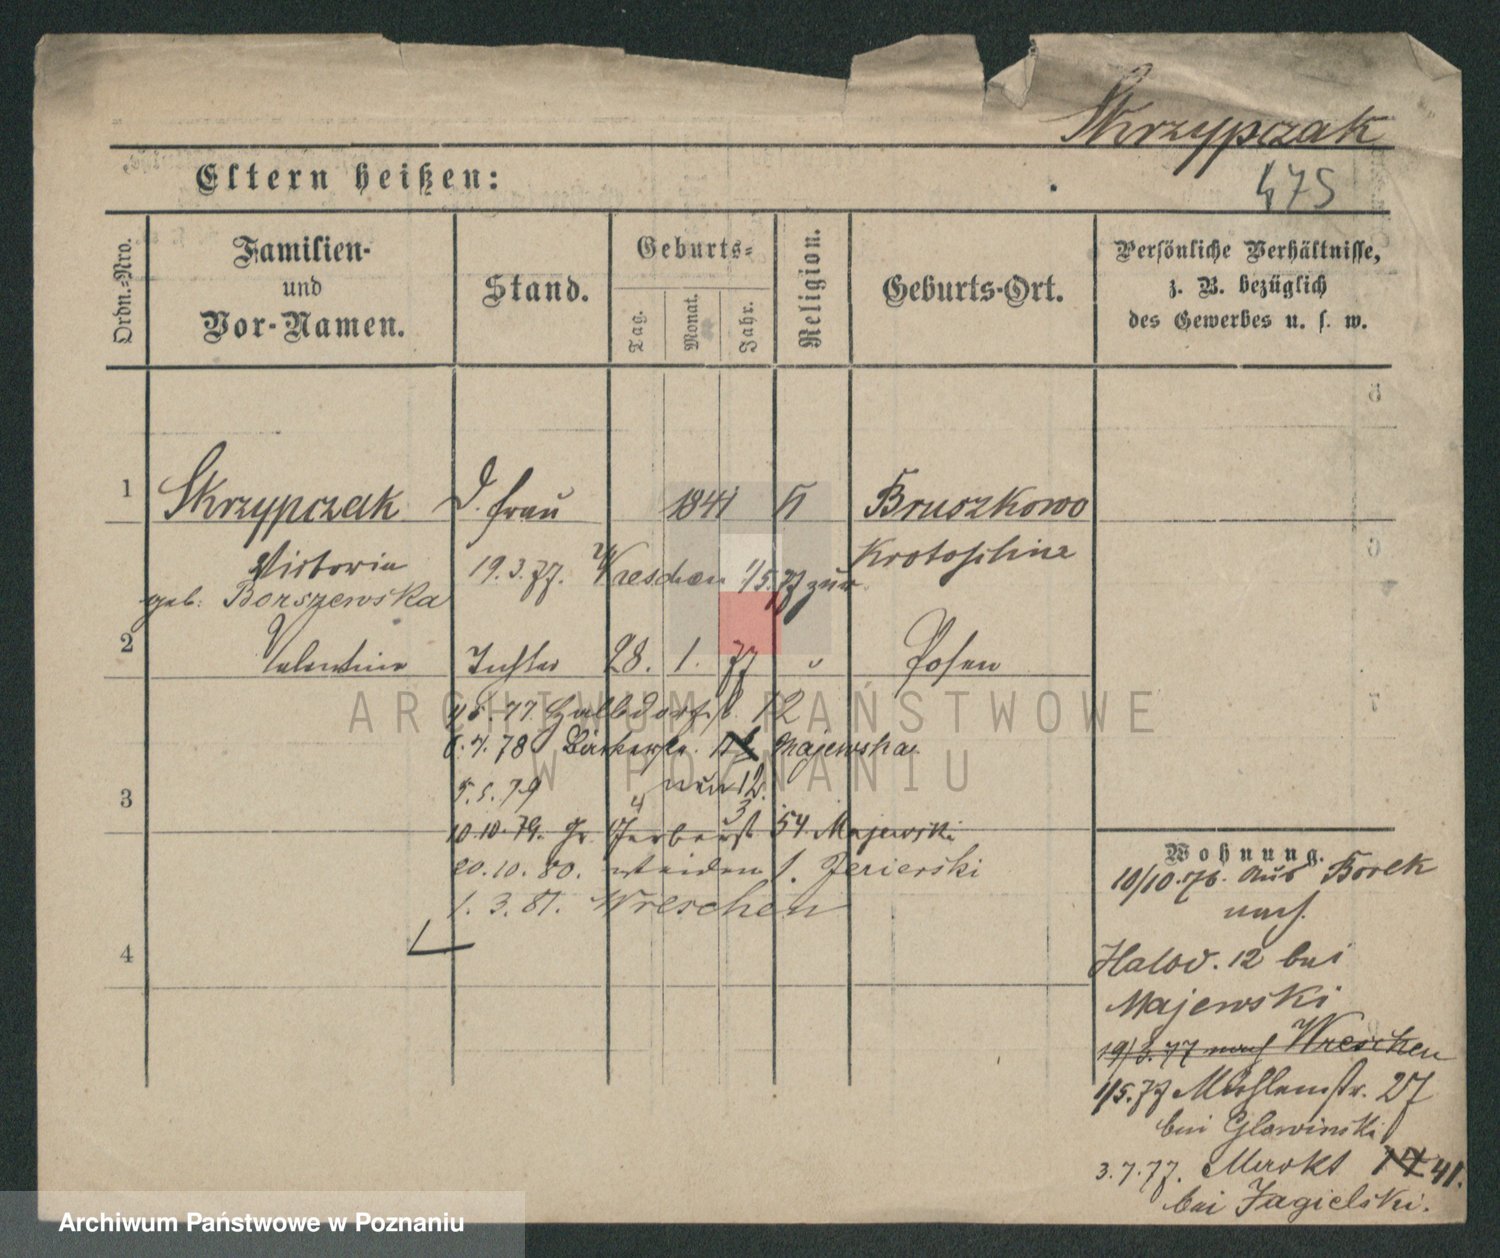 Skrzypczak
475
Eltern heißen:
Ordn.-Nro.
Familien-
und
Vor-Namen.
Stand.
Geburts-
Tag.
Monat.
Jahr.
Religion.
Geburts-Ort.
Persönliche Verhältnisse,
z. B. bezüglich
des Gewerbes u. s. w.
1 Skrzypczak d. Frau 1841 K Bruszkowo
Victoria 19.3.77. Wreschen 1/5.77 zur Krotoschin
geb. Borszewska
2 Valentine Tochter 28. 1. 77 " Posen
5.77 Halbdorfstr. 12
6.4.78 Bäckerstr. Majewska
5.5.79 nun 12.
3
10.10.79. Gr. Gerberstr 54 Majewski
20.10.80. Weiden 1. Jerierski
1.3.81. Wreschen
4
Wohnung.
10/10.76. aus Borek
nach
Halbd. 12 bei
Majewski
19/3.77 nach Wreschen
1/5.77 Mühlenstr. 27
bei Glowinski
3.7.77. Markt 41.
bei Jagielski.
ARCHIWUM PAŃSTWOWE
W POZNANIU
Archiwum Państwowe w Poznaniu